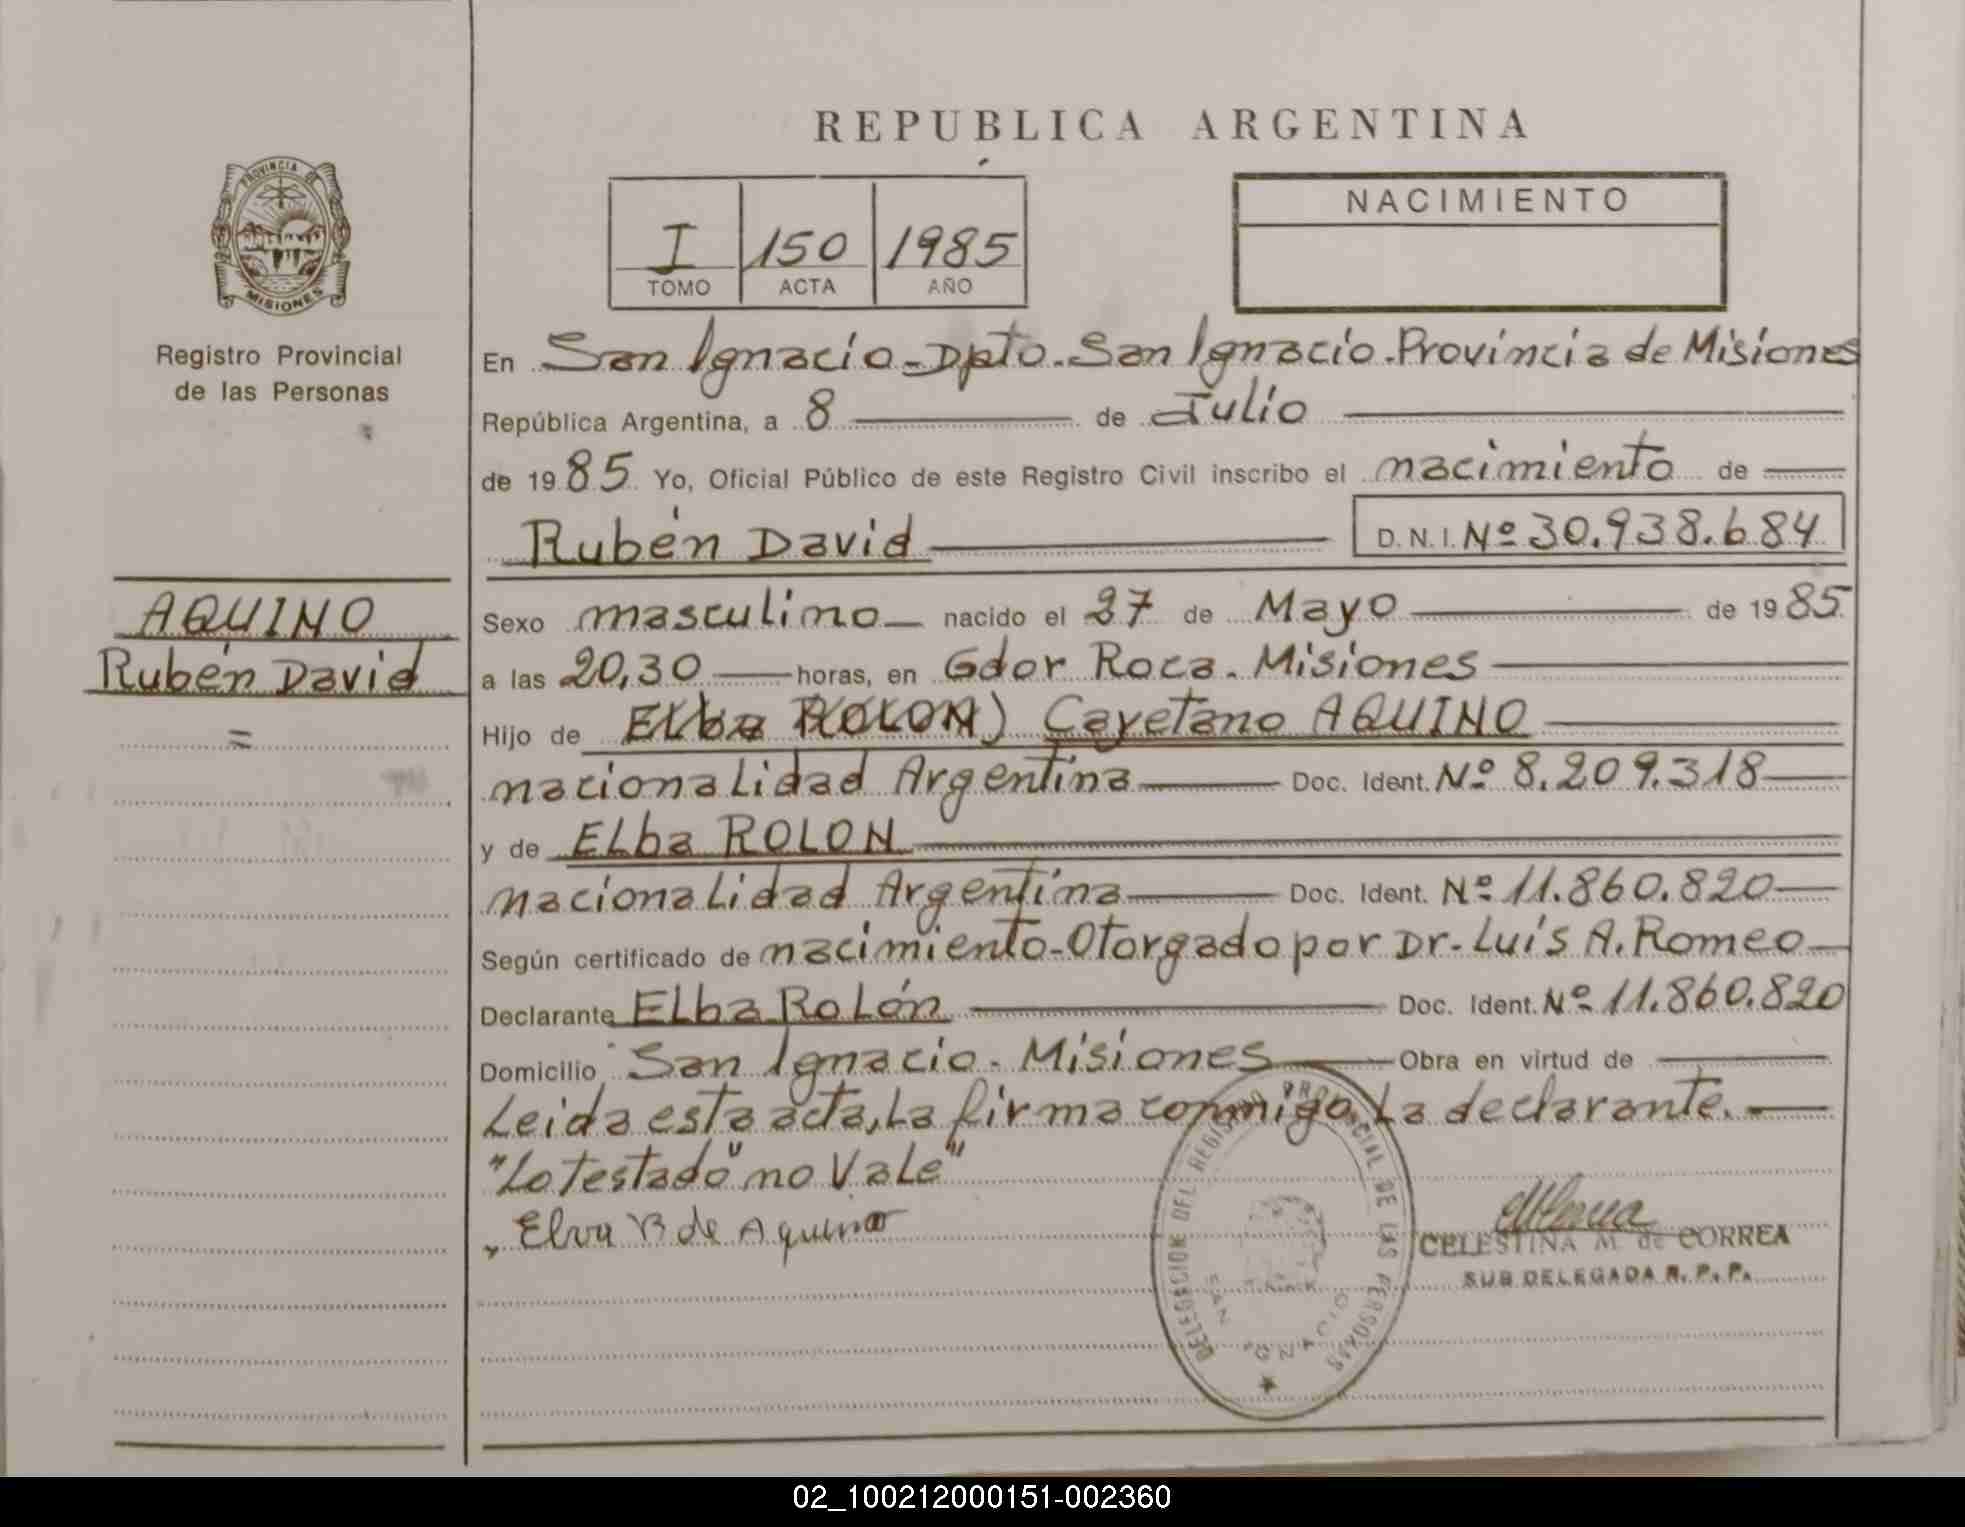 REPUBLICA ARGENTINA
PROVINCIA DE
MISIONES
Registro Provincial
de las Personas
I 150 1985
TOMO ACTA AÑO
NACIMIENTO
En San Ignacio-Dpto.San Ignacio.Provincia de Misiones
República Argentina, a 8 de Julio
de 1985 Yo, Oficial Público de este Registro Civil inscribo el nacimiento de
Rubén David D.N.I. Nº 30.938.684
AQUINO
Rubén David
=
Sexo masculino nacido el 27 de Mayo de 1985
a las 20,30 horas, en Gdor Roca. Misiones
Hijo de Elba ROLON) Cayetano AQUINO
nacionalidad Argentina Doc. Ident. Nº 8.209.318
y de Elba ROLON
nacionalidad Argentina Doc. Ident. Nº 11.860.820
Según certificado de nacimiento-Otorgado por Dr. Luís A. Romeo
Declarante Elba Rolón Doc. Ident. Nº 11.860.820
Domicilio San Ignacio. Misiones Obra en virtud de
Leida esta acta, La firma conmigo, La declarante.
"Lo testado" no Vale"
Elva B de Aquino
DELEGACION DEL REGISTRO PROVINCIAL DE LAS PERSONAS
SAN IGNACIO
CELESTINA M. de CORREA
SUB DELEGADA R. P. P.
02_100212000151-002360